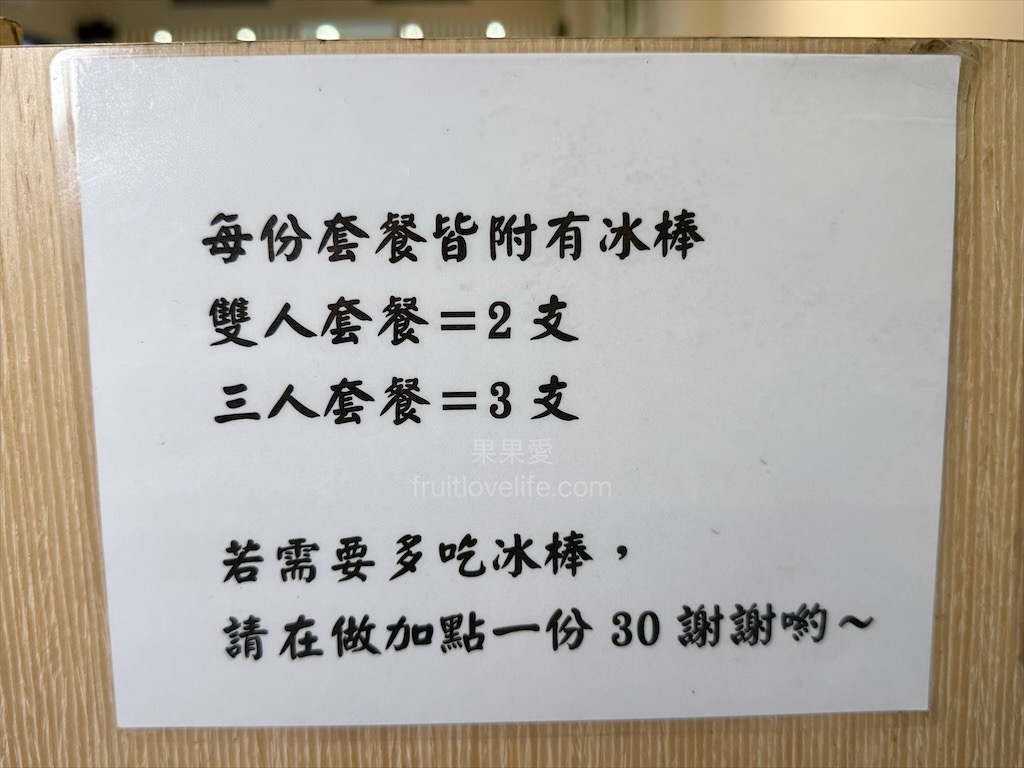 每份套餐皆附有冰棒
雙人套餐=2 支
三人套餐=3 支
果果愛
fruitlovelife.com
若需要多吃冰棒，
請在做加點一份 30 謝謝喲~